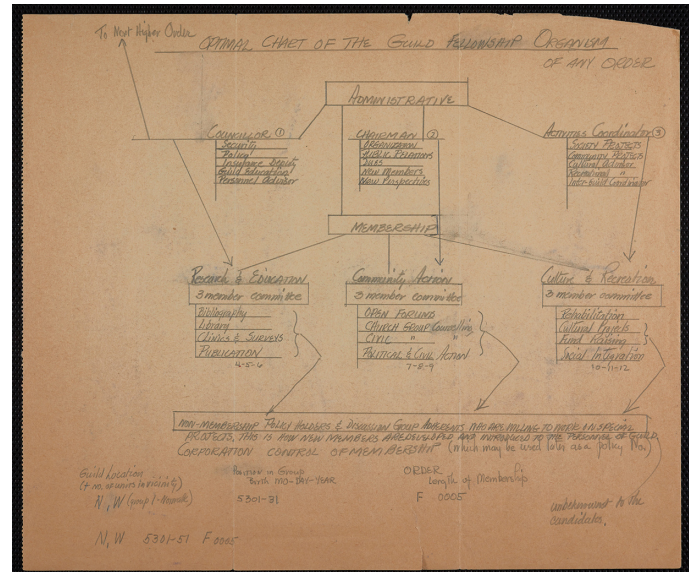 To Next Higher Order
OPTIMAL CHART OF THE GUILD FELLOWSHIP ORGANISM
OF ANY ORDER
ADMINISTRATIVE
COUNCILLOR ①
Security
Policy
Insurance Deputy
Guild Education
Personnel Advisor
CHAIRMAN ②
ORGANIZATION
PUBLIC RELATIONS
DUES
New Members
New Perspectives
Activities Coordinator ③
SOCIETY PROJECTS
Community PROJECTS
Cultural Advisor
Recreational "
Inter-Guild Coordinator
MEMBERSHIP
Research & EDUCATION
3 member committee
Bibliography
Library
Clinics & SURVEYS
PUBLICATION
4-5-6
Community Action
3 member committee
OPEN FORUMS
CHURCH GROUP Counselling
CIVIL " "
POLITICAL & CIVIL ACTION
7-8-9
Culture & Recreation
3 member committee
Rehabilitation
Cultural Projects
Fund Raising
Social Integration
10-11-12
NON-MEMBERSHIP POLICY HOLDERS & DISCUSSION GROUP ADHERENTS WHO ARE WILLING TO WORK IN SPECIAL
PROJECTS, THIS IS HOW NEW MEMBERS ARE DEVELOPED AND INTRODUCED TO THE PERSONNEL OF GUILD
CORPORATION CONTROL OF MEMBERSHIP (which may be used later as a policy No.)
unbeknownst to the
candidates.
Guild Location
(+ no. of units in vicinity)
N, W (group 1-
5301-31
Position in Group
Birth MO-DAY-YEAR
ORDER
Length of Membership
F 0005
N, W 5301-51 F 0005